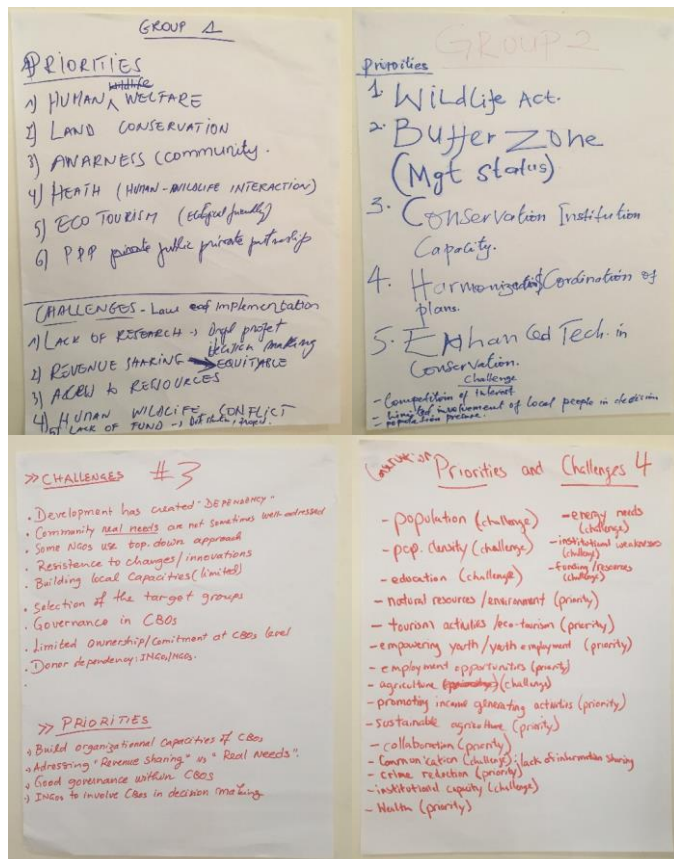 GROUP 1
PRIORITIES
1) HUMAN WELFARE
2) LAND CONSERVATION
3) AWARNESS (community.
4) HEATH (HUMAN-WILDLIFE INTERACTION)
5) ECO TOURISM (Ecological friendly)
6) PPP public private partnership
CHALLENGES - Law implementation
1) LACK OF RESEARCH ->
decision making
2) REVENUE SHARING -> EQUITABLE
3) TO RESOURCES
4) HUMAN WILDLIFE CONFLICT
5) LACK OF FUND ->
GROUP 2
priroities
1. WildLife Act.
2. Buffer Zone
(Mgt Status)
3. Conservation Institution
Capacity.
4. Cordination of
plans.
5. Enhanced Tech. in
Conservation.
Challenge
- Competition of interest
- Limited involvement of local people in decision
- population pressure.
>> CHALLENGES #3
. Development has created "DEPENDANCY"
. Community real needs are not sometimes well-adressed
. Some NGOs use top.down approach
. Resistence to changes/innovations
. Building local Capacities (limited)
. Selection of the target groups
. Governance in CBOs
. Limited ownership/Comitment at CBOs level
. Donor dependency: INGOs/NGOs.
.
>> PRIORITIES
Build organizationnel capacities of CBOs
Adressing "Revenue sharing" vs "Real Needs".
Good governance within CBOs
INGOs to involve CBOs in decision making
Priorities and Challenges 4
- population (challenge)
- pop. density (challenge)
- education (challenge)
- energy needs
(challenge)
- institutional weaknesses
(challenge)
- funding/resources
(challenge)
- natural resources/environment (priority)
- tourism activities/eco-tourism (priority)
- empowering youth/youth employment (priority)
- employment opportunities (priority)
- agriculture (challenge)
- promoting income generating activities (priority)
- sustainable agriculture (priority)
- collaboration (priority)
- Communication (challenge); lack of information sharing
- crime reduction (priority)
- institutional capacity (challenge)
- Health (priority)